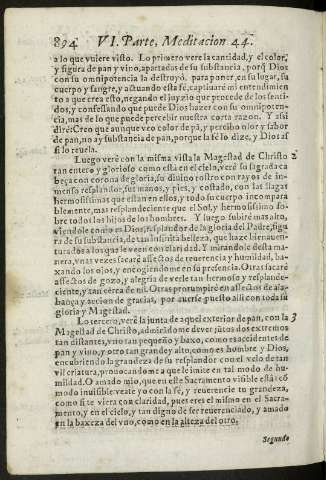 894 VI. Parte, Meditacion 44.
a lo que vuiere visto. Lo primero vere la cantidad, y el color,
y figura de pan y vino, apartadas de su substancia, porq̃ Dios
con su omnipotencia la destruyò, para poner, en su lugar, su
cuerpo y sangre, y actuando esta fè, captiuarè mi entendimien
to a que crea esto, negando el juyzio que procede de los senti-
dos, y confessando que puede Dios hazer con su omnipoten-
cia, mas de lo que puede percebir nuestra corta razon. Y assi
dirè: Creo que aunque veo color de pã, y percibo olor y sabor
de pan, no ay substancia de pan, porque la fè lo dize, y Dios as
si lo reuela.
Luego verè con la misma vista la Magestad de Christo 2
tan entero y glorioso como està en el cielo, verè su sagrada ca
beça con corona de gloria, su diuino rostro con rayos de in-
menso resplandor, sus manos, y pies, y costado, con las llagas
hermosissimas que estan en ellos, y todo su cuerpo incompara
blemente, mas resplandeciente que el Sol, y hermosissimo so-
bre todos los hijos de los hombres. Y luego subirè mas alto,
viendole como es Dios, resplandor de la gloria del Padre, figu
ra de su substancia, de tan infinita belleza, que haze bienauen-
turados a los que le veen con claridad. Y mirandole desta ma-
nera, vnas vezes sacarè affectos de reuerencia y humildad, ba-
xando los ojos, y encogiendome en su presencia. Otras sacarè
affectos de gozo, y alegria de verle tan hermoso y resplande-
ciente, y tan cerca de mi. Otras prorumpirè en affectos de ala-
bança y accion de gracias, por auerse puesto alli con toda su
gloria y Magestad.
Lo tercero, verè la junta de aquel exterior de pan, con la 3
Magestad de Christo, admirãdome de ver jũtos dos extremos
tan distantes, vno tan pequeño y baxo, como es accidentes de
pan y vino, y otro tan grande y alto, como es hombre y Dios,
encubriendo la grandeza de su resplandor con el velo de tan
vil criatura, prouocandome a que le imite en tal modo de hu-
mildad. O amado mio, que en este Sacramento visible estàs cõ
modo inuisible, veate yo con la fè, y reuerencie tu grandeza,
como si te viera con claridad, pues eres el mismo en el Sacra-
mento, y en el cielo, y tan digno de ser reuerenciado, y amado
en la baxeza del vno, como en la alteza del otro.
Segundo